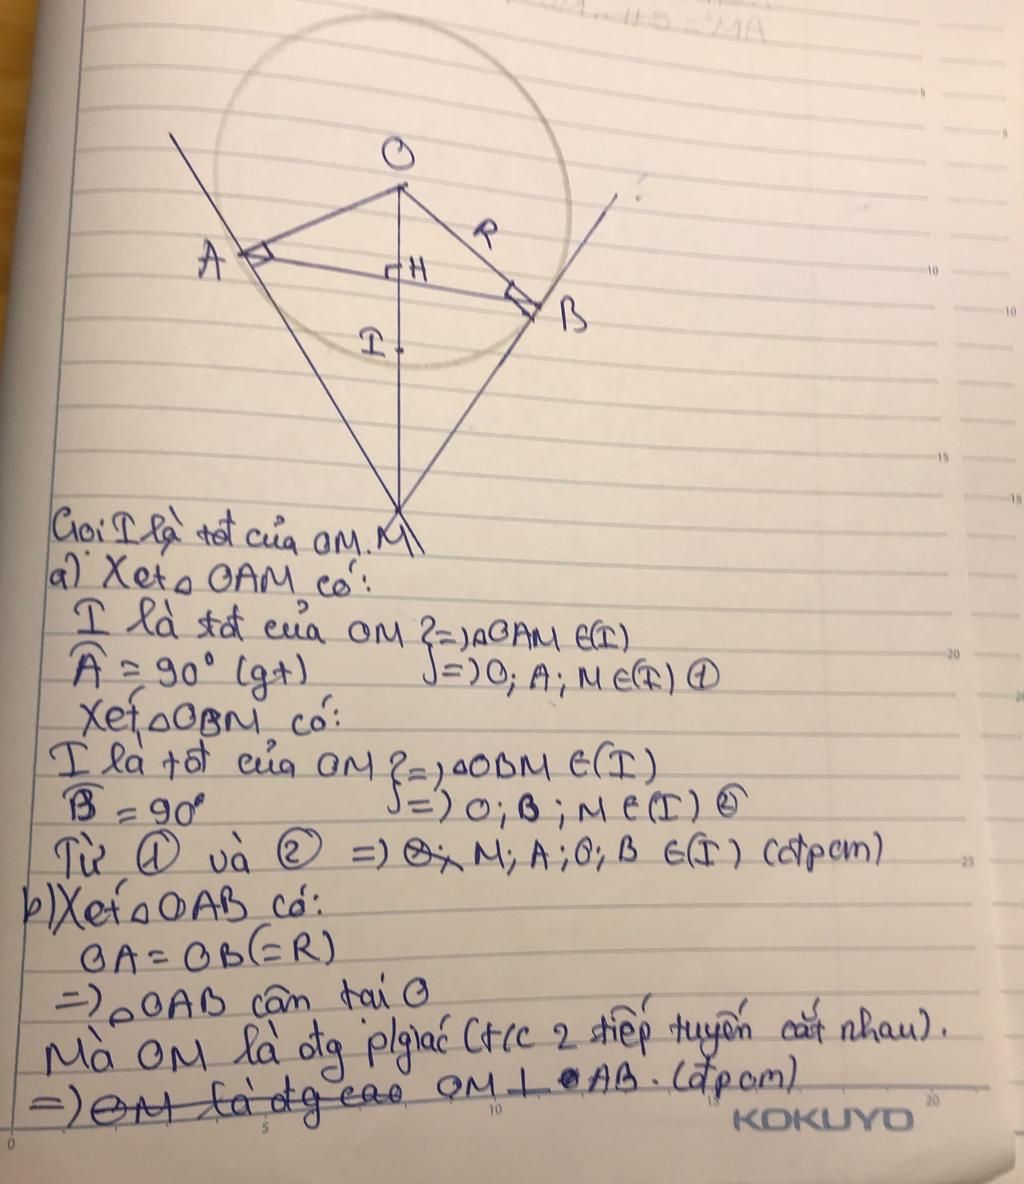 O
R
A
H
B
I
Gọi I là tđ của OM. M
a) Xét △OAM có:
I là tđ của OM } => △OAM ∈(I)
Â = 90° (gt) => O; A; M ∈(I) ①
Xét △OBM có:
I là tđ của OM } => △OBM ∈(I)
B̂ = 90° => O; B; M ∈(I) ②
Từ ① và ② => M; A; O; B ∈(I) (đpcm)
b) Xét △OAB có:
OA = OB (=R)
=> △OAB cân tại O
Mà OM là đg p/giác (t/c 2 tiếp tuyến cắt nhau).
=) OM là đg cao OM ⊥ AB. (đpcm)
KOKUYO